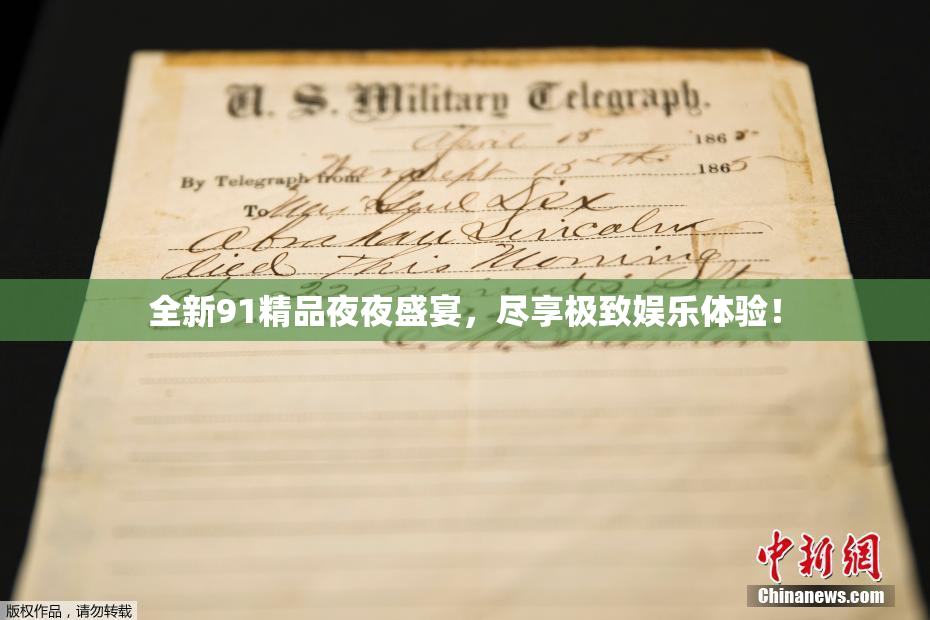 U. S. Military Telegraph.
April 15 1865
By Telegraph from War Dept 15th 1865
To Maj Genl Dix
Abraham Lincoln
died This Morning
at 22 minutes after
全新91精品夜夜盛宴，尽享极致娱乐体验！
E. M. Stanton
中新网
Chinanews.com
版权作品，请勿转载